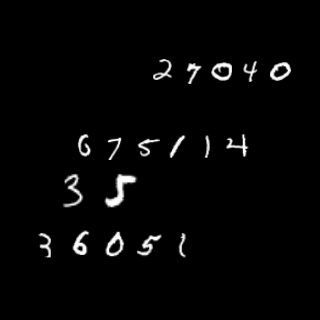 27040
675114
35
36051